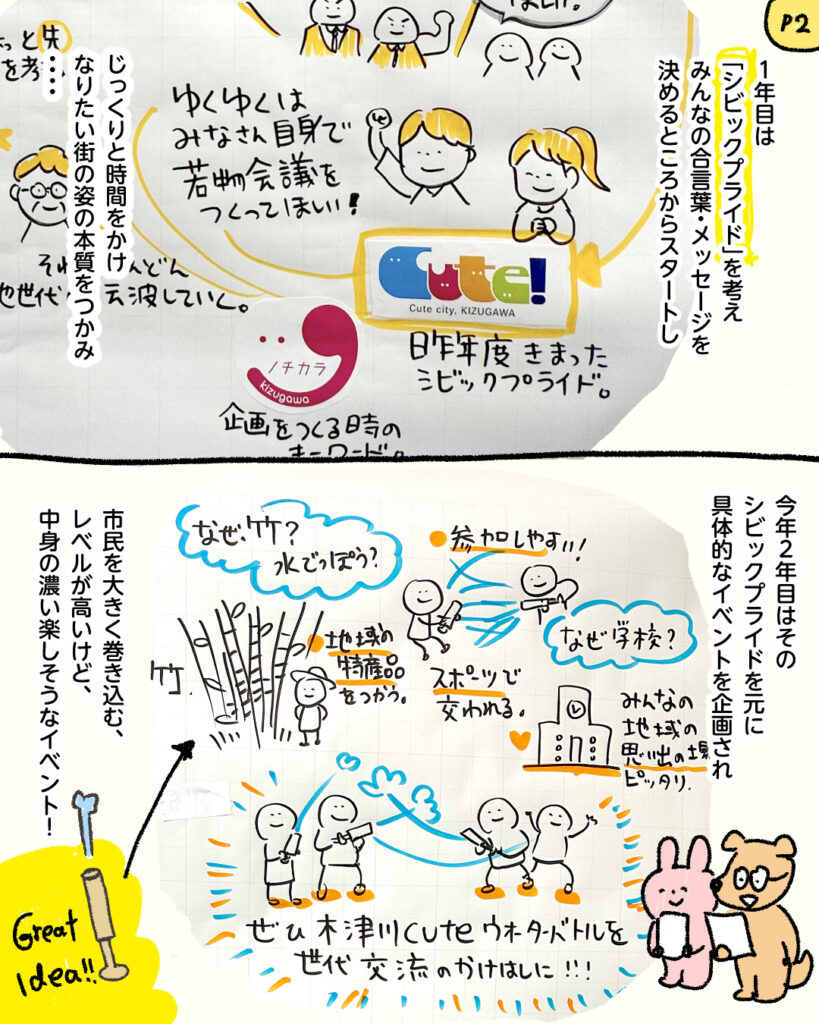 P2
1年目は
「シビックプライド」を考え
みんなの合言葉・メッセージを
決めるところからスタートし
ゆくゆくは
みなさん自身で
若物会議を
つくってほしい!
Cute!
Cute city, KIZUGAWA
昨年度きまった
シビックプライド。
ノチカラ
kizugawa
企画をつくる時の
キーワード。
じっくりと時間をかけ
なりたい街の姿の本質をつかみ
‥‥
今年2年目はその
シビックプライドを元に
具体的なイベントを企画され
なぜ、竹?
水でっぽう?
参加しやすい!
なぜ学校?
竹
地域の
特産品
をつかう。
スポーツで
交われる。
みんなの
地域の
思い出の場
ピッタリ.
ぜひ木津川cuteウォーターバトルを
世代交流のかけはしに!!!
市民を大きく巻き込む、
レベルが高いけど、
中身の濃い楽しそうなイベント!
Great
Idea!!